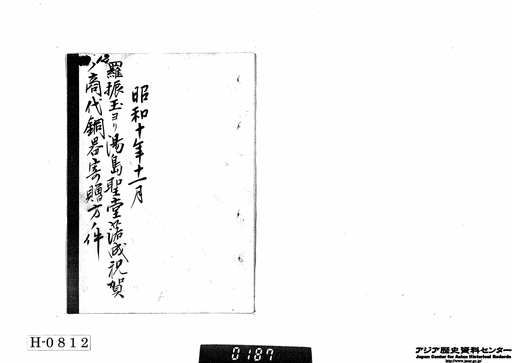 昭和十年十一月
羅振玉ヨリ湯島聖堂落成祝賀
商代銅器寄贈方ノ件
H-0812
0187
アジア歴史資料センター
Japan Center for Asian Historical Records
http://www.jacar.go.jp/